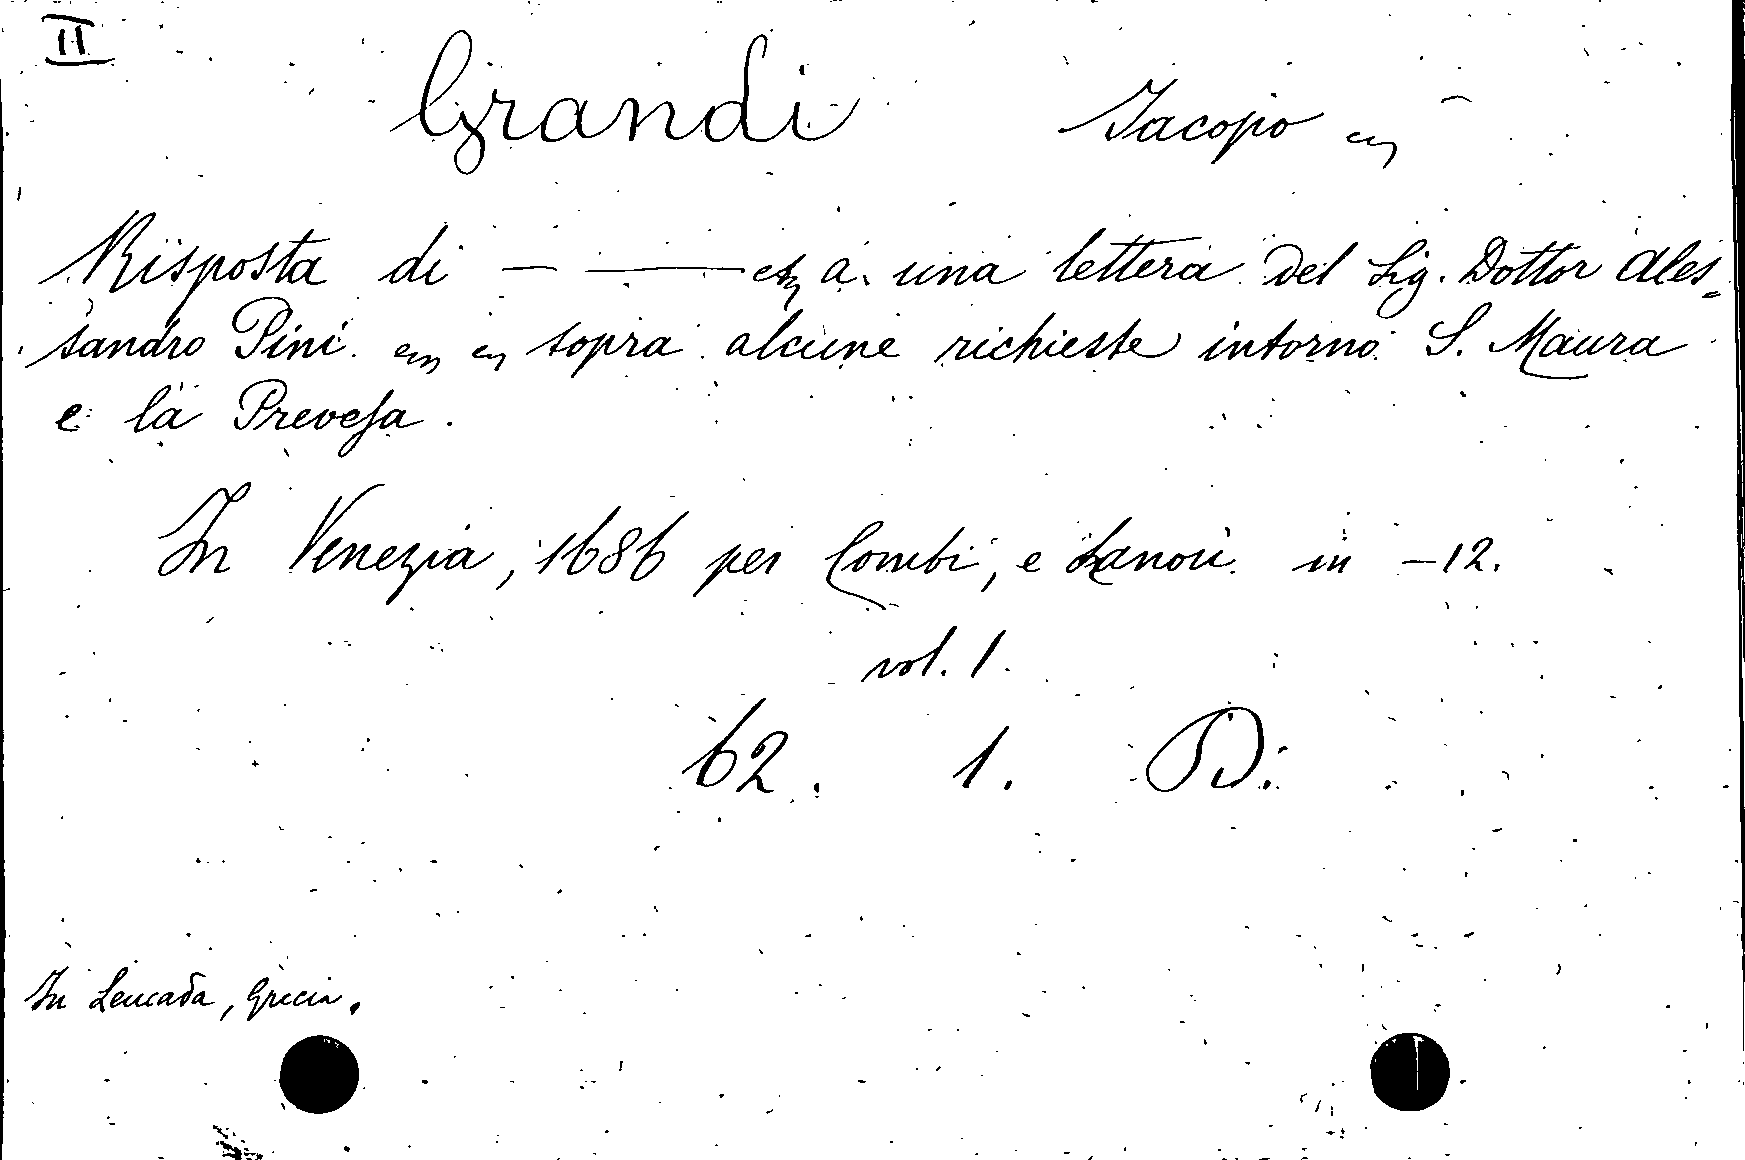 II
Grandi Jacopo
Risposta di — —— etz a una lettera del Sig. Dottor Ales=
sandro Pini sopra alcune richieste intorno S. Maura
e la Prevesa.
In Venezia, 1686 per Combi, e Lanoù in -12.
vol. 1.
62. 1. D.
In Leucada, Grecia.